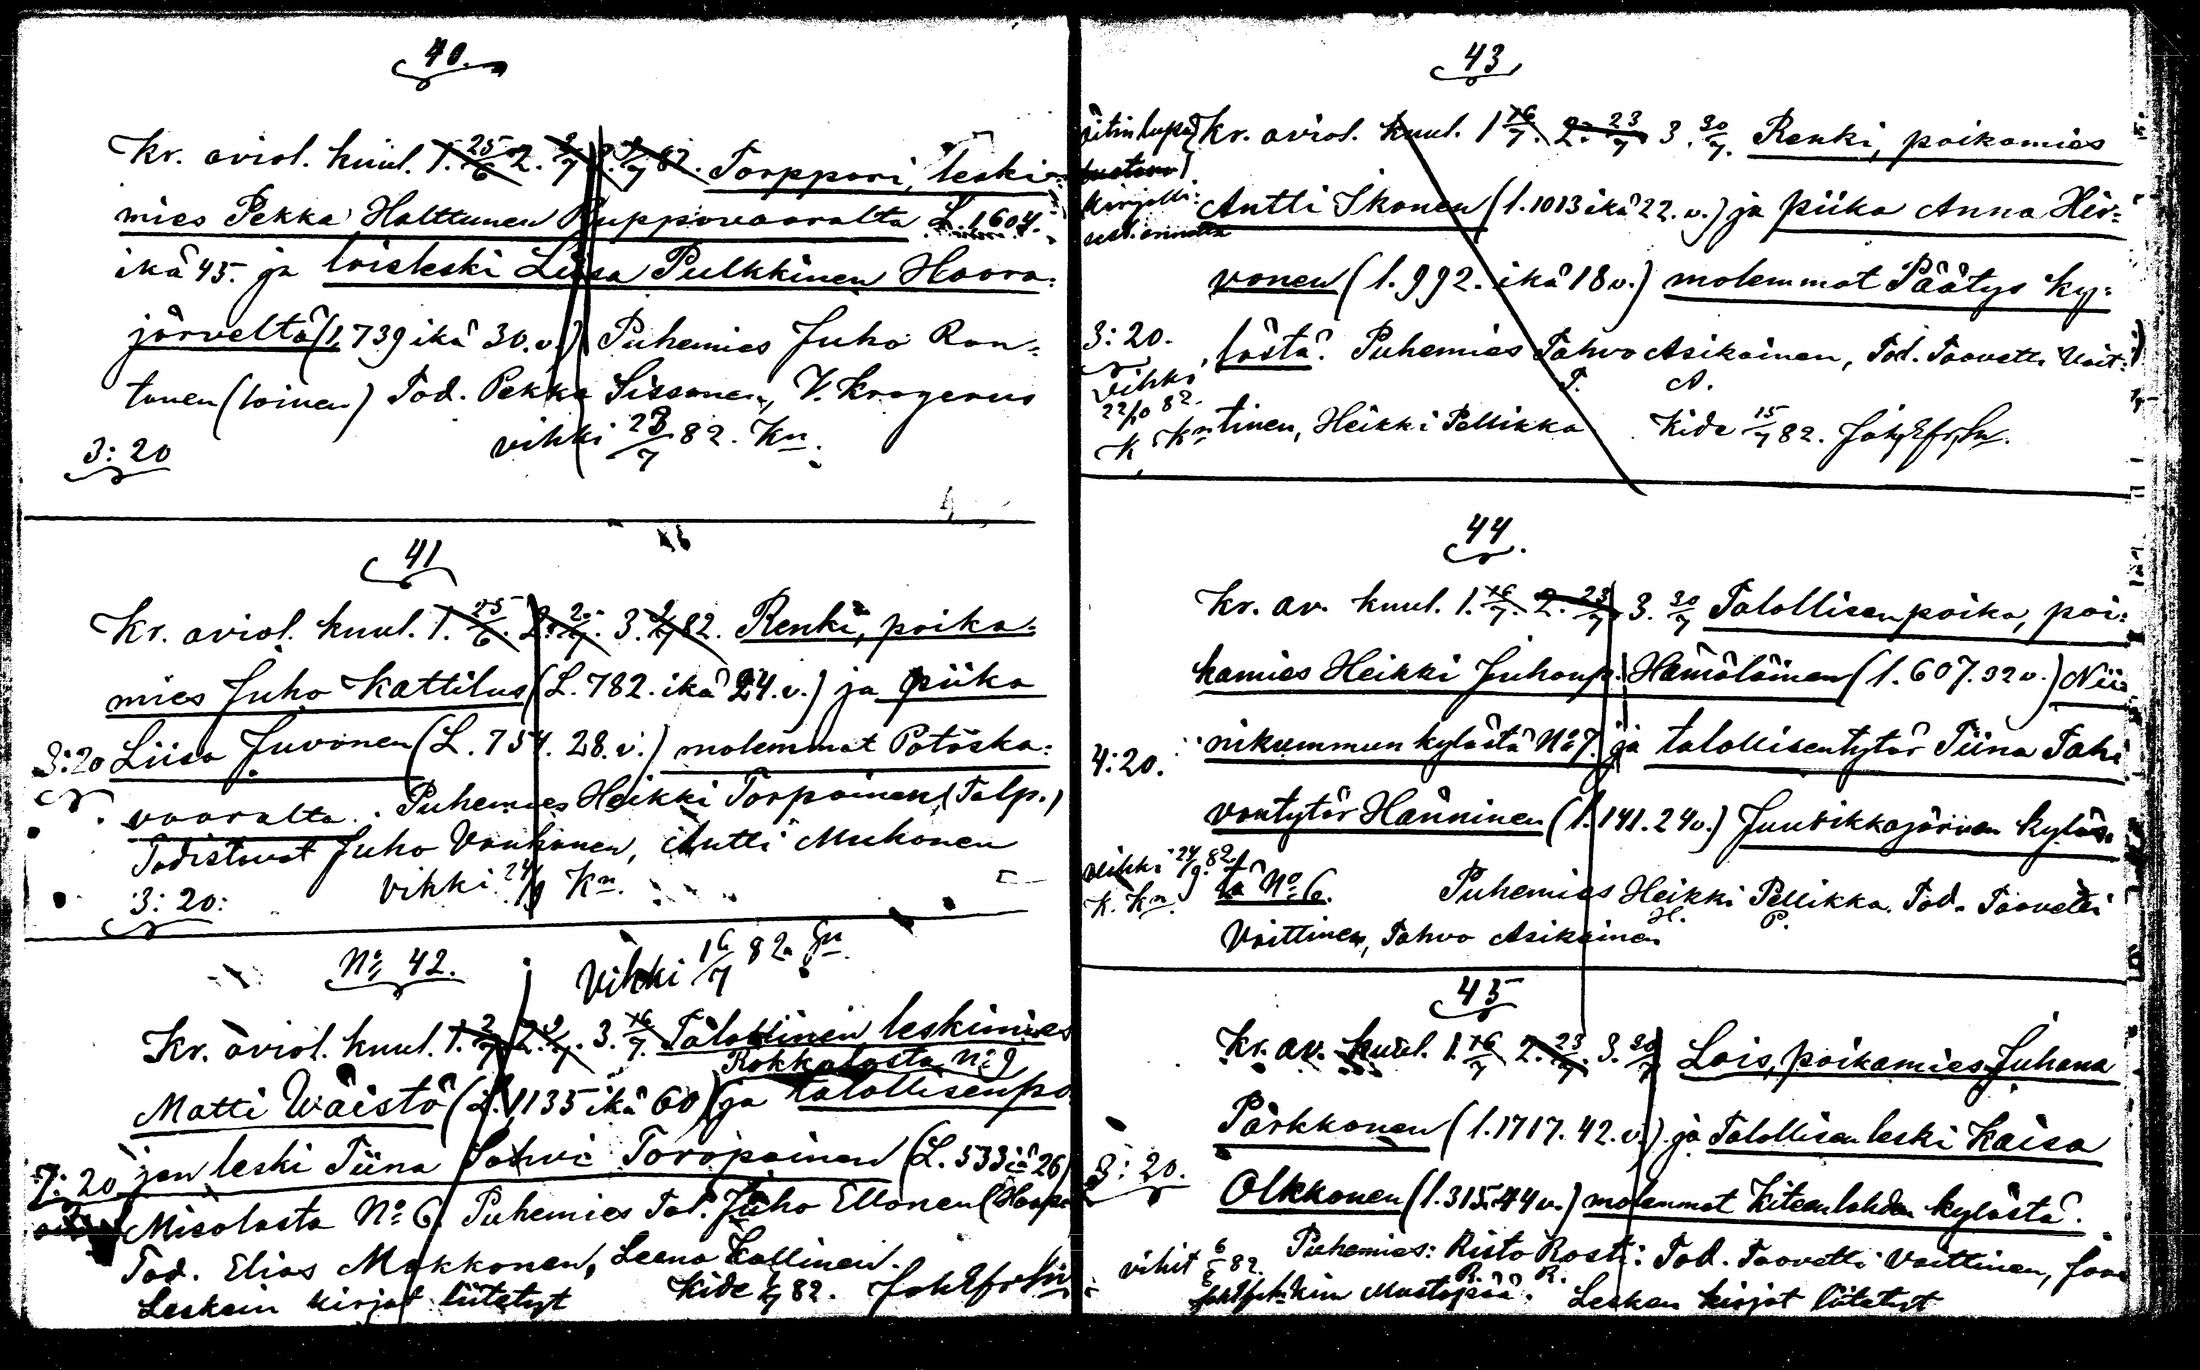 40.
Kr. aviol. kuul. 1. 25/6 2. 2/7 3. 9/7 82. Torppari, leski-
mies Pekka Halttunen Ruppovaaralta L. 1604.
ikä 45. ja loisleski Liisa Pulkkinen Haara-
järveltä (l. 739 ikä 30. v.) Puhemies Juho Ron-
tunen (loinen) Tod. Pekka Sissonen, V. Krogerus
3:20
vihki 23/7 82. Kn.
41
Kr. aviol. kuul. 1. 25/6. 2. 3. 82. Renki, poika-
mies Juho Kattilus (L. 782. ikä 24. v.) ja piika
3:20 Liisa Juvonen (L. 754. 28. v.) molemmat Potoska-
vaaralta. Puhemies Heikki Torpainen (Talp.)
Todistavat Juho Vanhanen, Antti Muhonen
3:20:
vihki Kn.
No 42.
vihki 16/7 82
Kr. aviol. kuul. 1. 2/7 2. 9/7. 3. 16/7. Talollinen leskimies
Rokkalasta No 9
Matti Wäistö (L. 1135 ikä 60) ja talollisenpo-
7:20 jan leski Tiina Toropainen (L. 533 26)
Misolasta No 6. Puhemies Tal. Juho Ellonen
Tod. Elias Makkonen, Leena Kallinen.
Leskein kirjat liitetyt
Kide 82.
43
Kr. aviol. kuul. 1 16/7. 2. 23/7 3. 30/7. Renki, poikamies
Antti Ikonen (l. 1013 ikä 22. v.) ja piika Anna Hir-
vonen (l. 992. ikä 18 v.) molemmat Päätys ky-
3:20.
lästä. Puhemies Tahvo Asikainen, Tod. Taavetti Vait-
T. A.
vihki
22/10 82.
K. Kn
tinen, Heikki Pellikka
Kide 15/7 82.
44.
Kr. av. kuul. 1. 16/7. 2. 23/7 3. 30/7 Talollisenpoika, poi-
kamies Heikki Juhanp. Hämäläinen (l. 607. 32 v.) Nii-
4:20.
nikummun kylästä No 7. ja talollisentytär Tiina Tah-
vontytär Hänninen (l. 141. 24 v.) Juurikkajärven kyläs-
vihki 24/9. 82
K. Kn.
tä No 6.
Puhemies Heikki Pellikka. Tod. Taavetti
H. P.
Vaittinen, Tahvo Asikainen
45
Kr. av. kuul. 1. 16/7 2. 23/7. 3. 30/7 Lois, poikamies Juhana
Pärkkonen (l. 1717. 42. v.) ja Talollisen leski Kaisa
3:20.
Olkkonen (l. 315. 44 v.) molemmat Kiteenlahden kylästä.
vihit 82.
Puhemies: Risto Rosti: Tod. Taavetti Vaittinen, Joa-
R. R.
kim Mustapää.
Lesken kirjat liitetyt